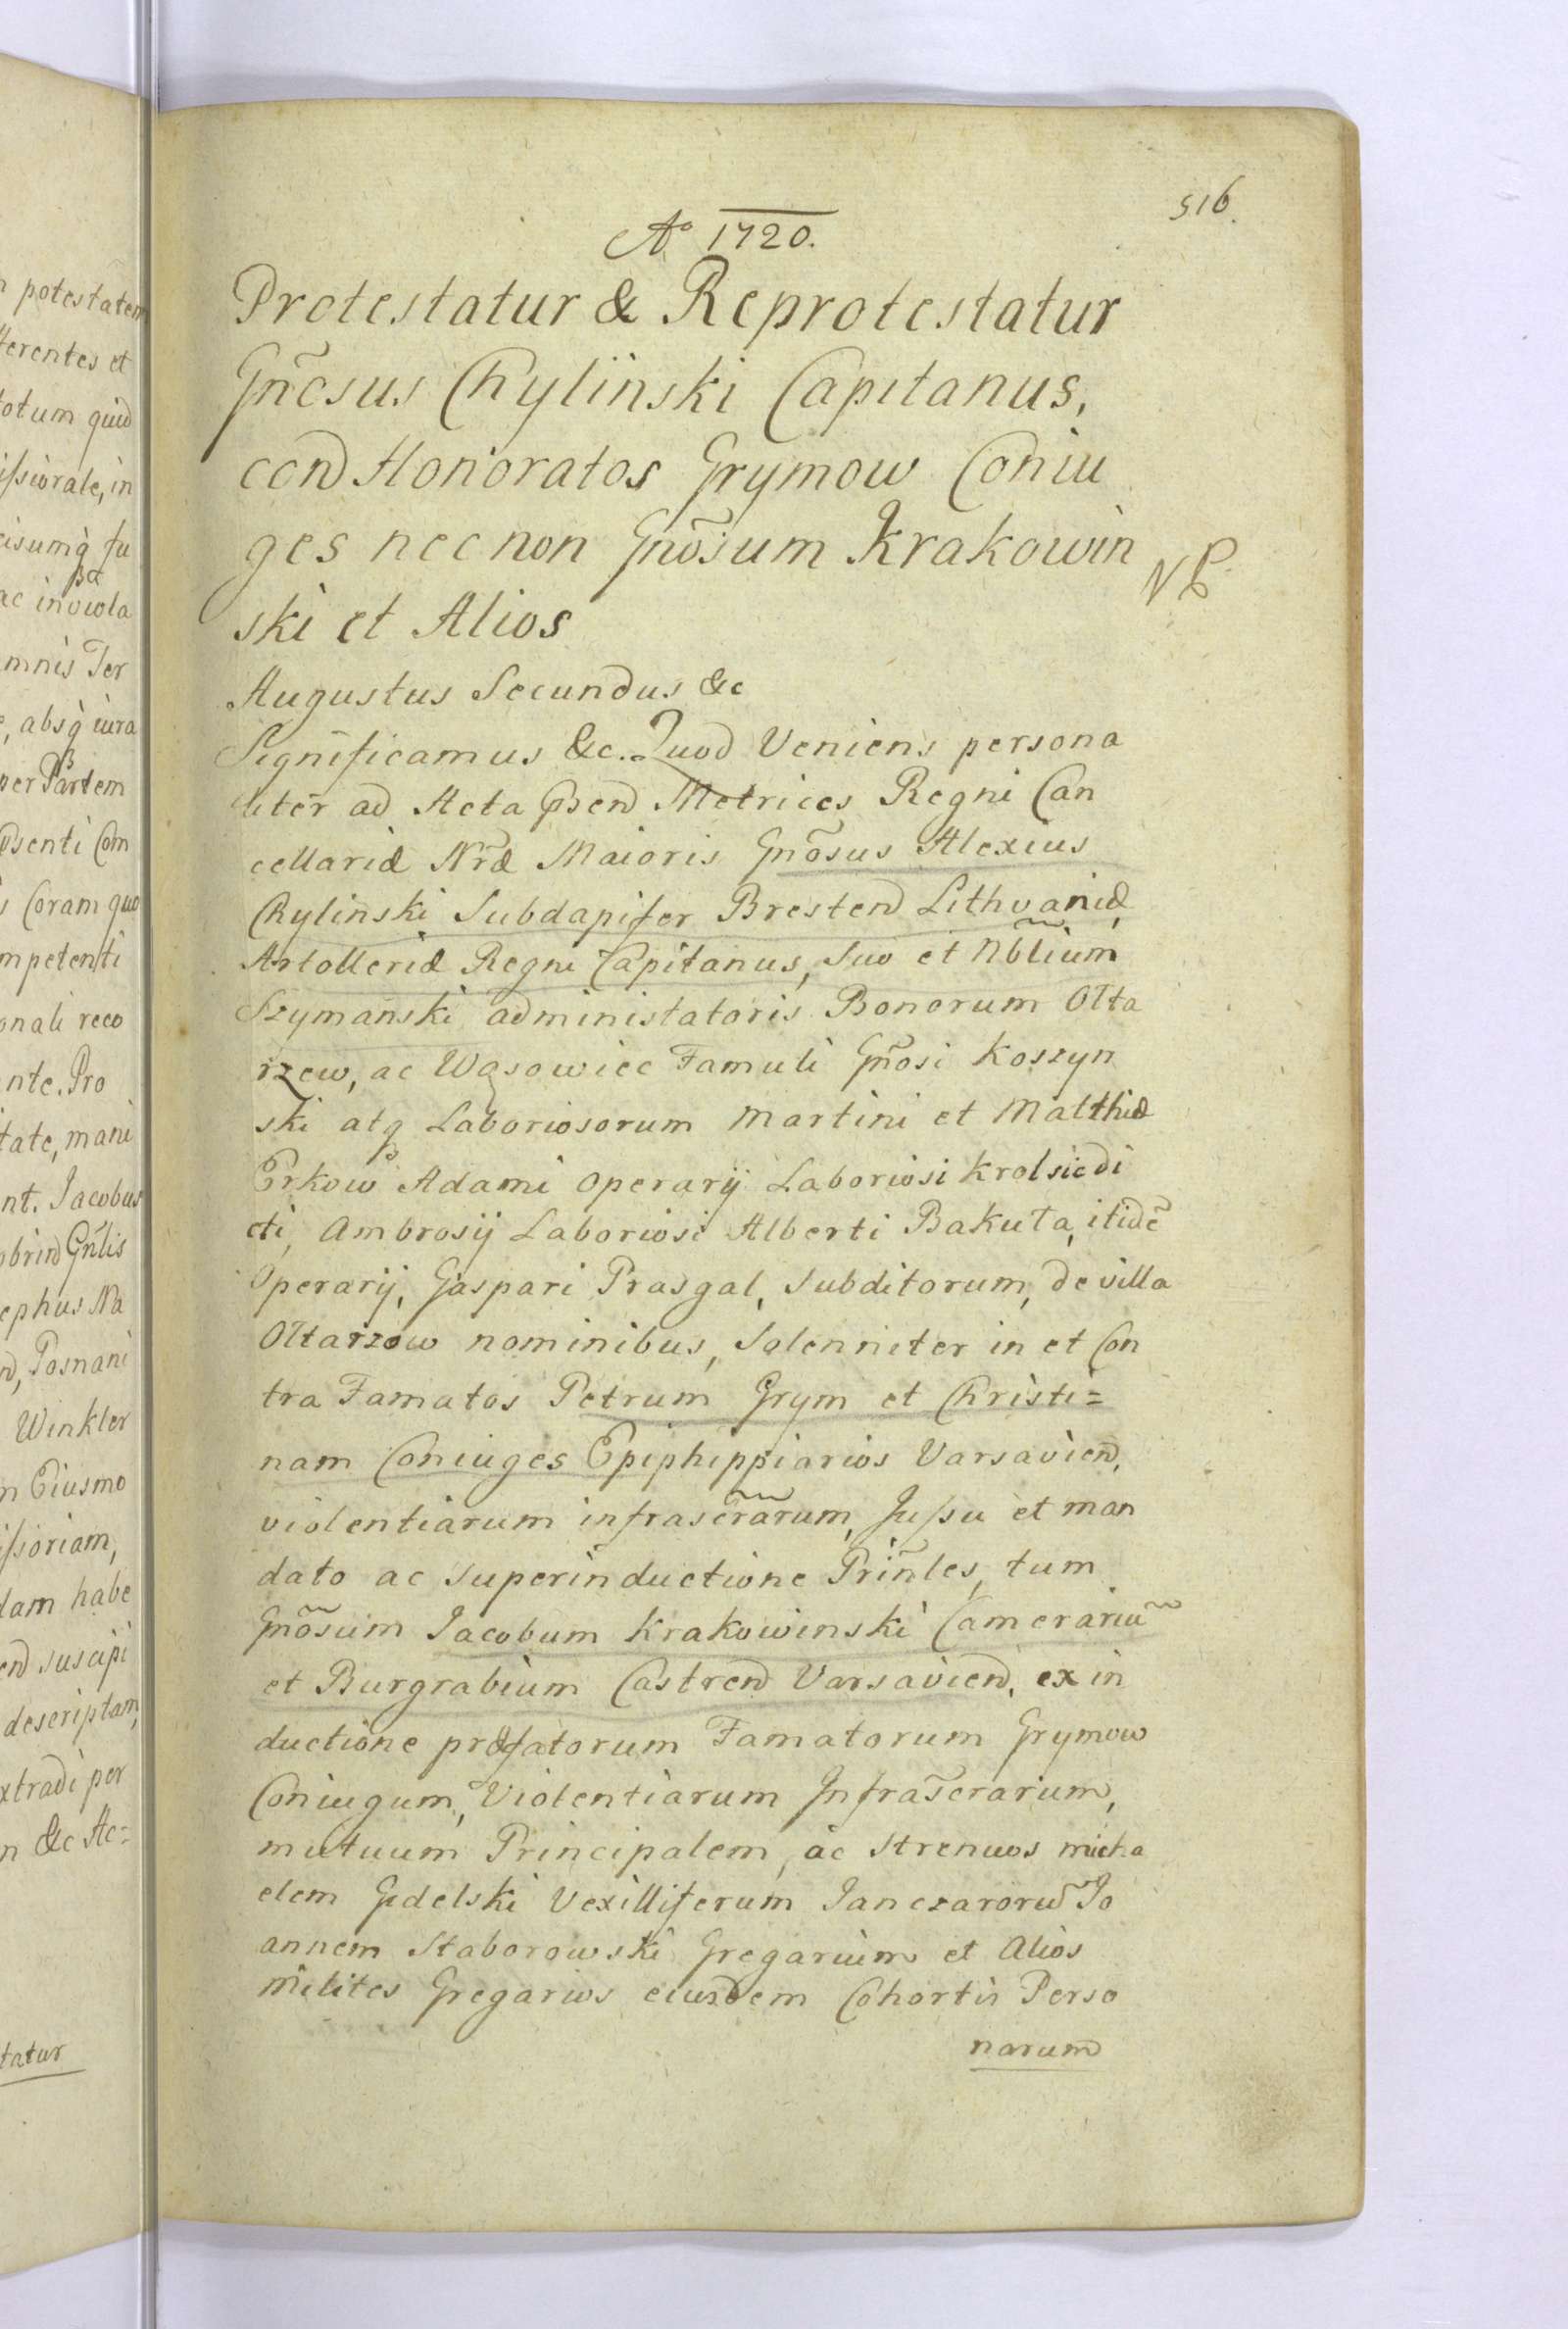 n potestatem
ferentes et
totum quid
issiorale, in
cisumq̀ fu
ac inviola
mnis Ter
e, absq̀ iura
per Partem
Psenti Com
s Coram quo
mpetenti
onali reco
nte. Pro
tate, mani
nt. Jacobus
obrin Gñlis
ephus Na
Posnani
Winkler
m Eiusmo
issoriam,
dam habe
end suscipi
descriptam,
xtradi per
n &c Ac=
tatur
516.
Aº 1720.
Protestatur & Reprotestatur
Gñosus Chylinski Capitanus,
con Honoratos Grymow Coniu
ges necnon Gnõsum Krakowin
ski et Alios
NB
Augustus Secundus &c
Significamus &c. Quod Veniens persona
liter ad Acta Psen Metrices Regni Can
cellariæ Nr̃æ Maioris Gnõsus Alexius
Chylinski Subdapifer Bresten Lithvaniæ,
Artolleriæ Regni Capitanus, Suo et Nb̃lium
Szymański administatoris Bonorum Ołta
rzew, ac Wąsowiec Famuli Gñosi Koszyn
ski atq Laboriosorum Martini et Matthiæ
Erkow Adami Operarij Laboriosi Krolsic di
cti, Ambrosij Laboriosi Alberti Bakuta, itidẽ
Operarij, Gaspari Prasgal, Subditorum, de villa
Ołtarzow nominibus, Solenniter in et Con
tra Famatos Petrum Grym et Christi=
nam Coniuges Epiphippiarios Varsavien,
violentiarum infrascr̃arum, Jussu et man
dato ac superinductione Priñles, tum
Gnõsum Jacobum Krakowinski Camerariũ
et Burgrabium Castren Varsavien, ex in
ductione præfatorum Famatorum Grymow
Coniugum, Violentiarum Infrascrarum,
mutuum Principalem, ac Strenuos Micha
elem Gidelski Vexilliferum Janczarorũ Jo
annem Staborowski Gregarium et Alios
Milites Gregarios eiusdem Cohortis Perso
narum